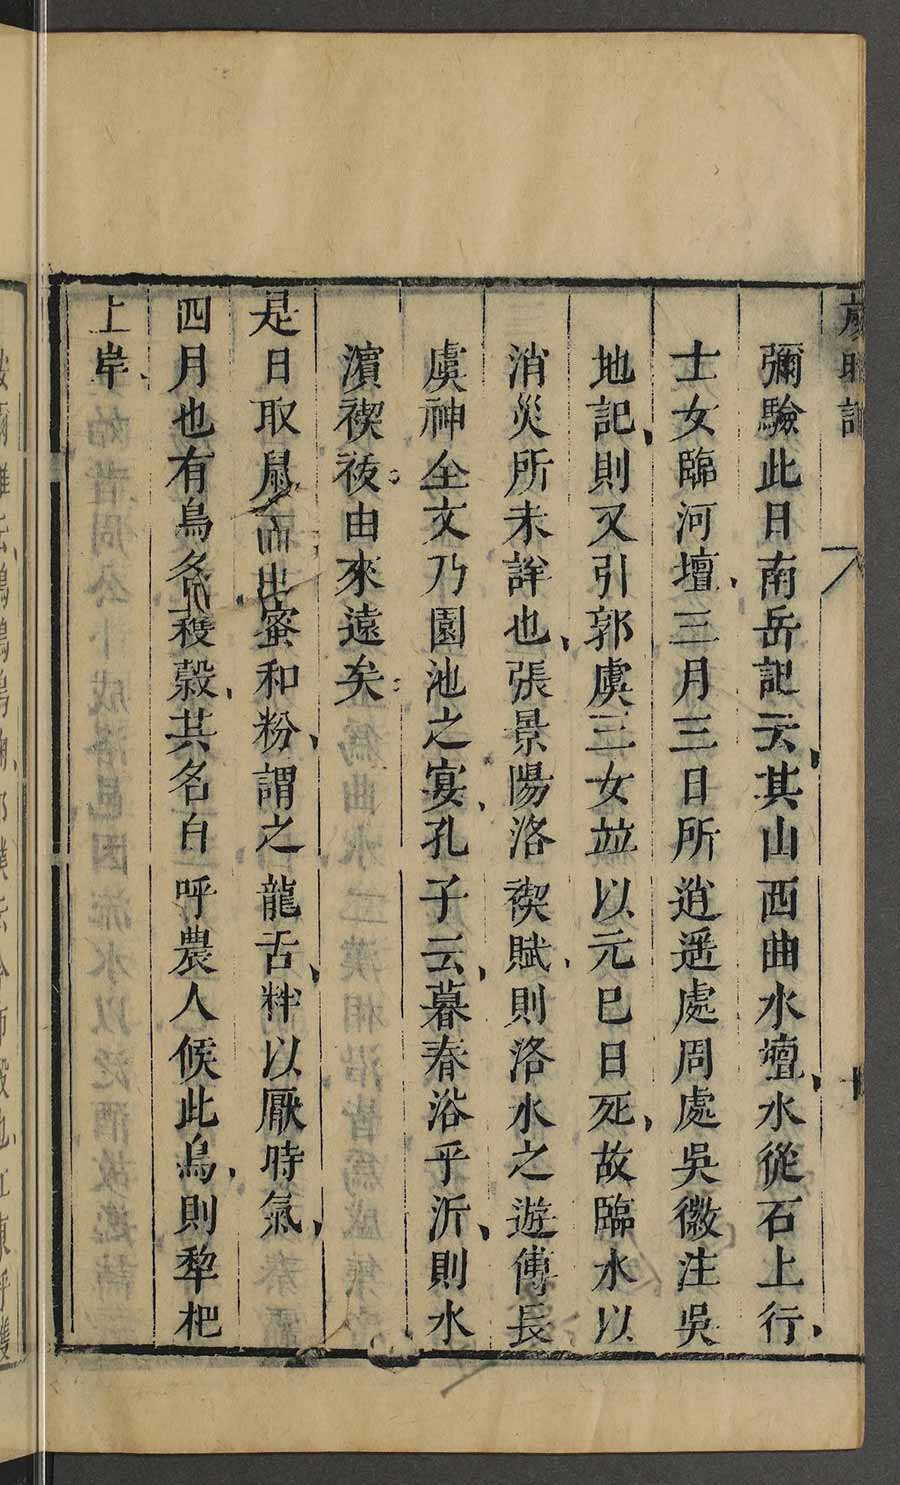 彌驗此日南岳記云其山西曲水壇水從石上行
士女臨河壇三月三日所逍遥處周處吳徽注吳
地記則又引郭虞三女並以元巳日死故臨水以
消災所未詳也張景陽洛禊賦則洛水之遊傅長
虞神全文乃園池之宴孔子云暮春浴乎沂則水
濵禊祓由來遠矣
是日取鼠而出蜜和粉謂之龍舌䉽以厭時氣
四月也有鳥名獲穀其名自呼農人候此鳥則犂杷
上岸